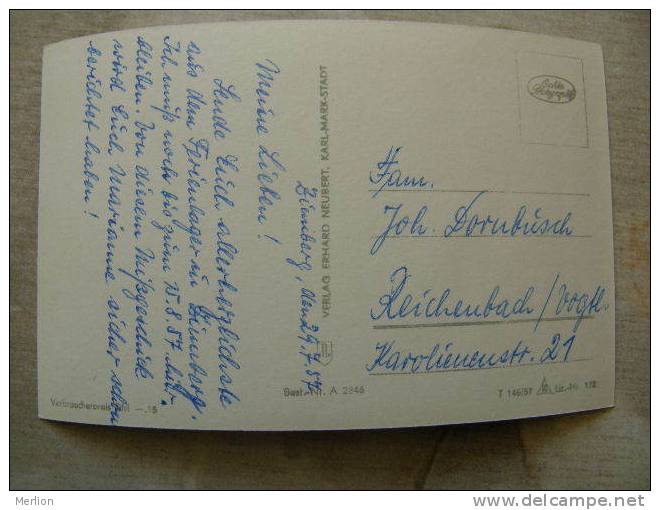 Zinnberg, den 29.7.57
Meine Lieben!
Sende Euch allerherzlichste
aus dem Ferienlager in Zinnberg.
Ich muß noch bis zum 15.8.57 hier
bleiben. Von unserem Mißgeschick
wird Euch Marianne sicher schon
berichtet haben!
VERLAG ERHARD NEUBERT, KARL-MARX-STADT
Fam.
Joh. Dornbusch
Reichenbach/Vogtl.
Karolinenstr. 21
Verbraucherpreis DM —.15
Best.-Nr. A 2346
T 146/57 Liz.-Nr. 172
Merlion
http://www.delcampe.net